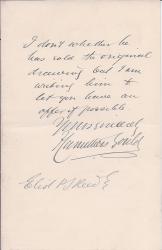 I don't whether he
has sold the original
drawing but I am
writing him to
let you have an
offer if possible.
Yours sincerely
Gould